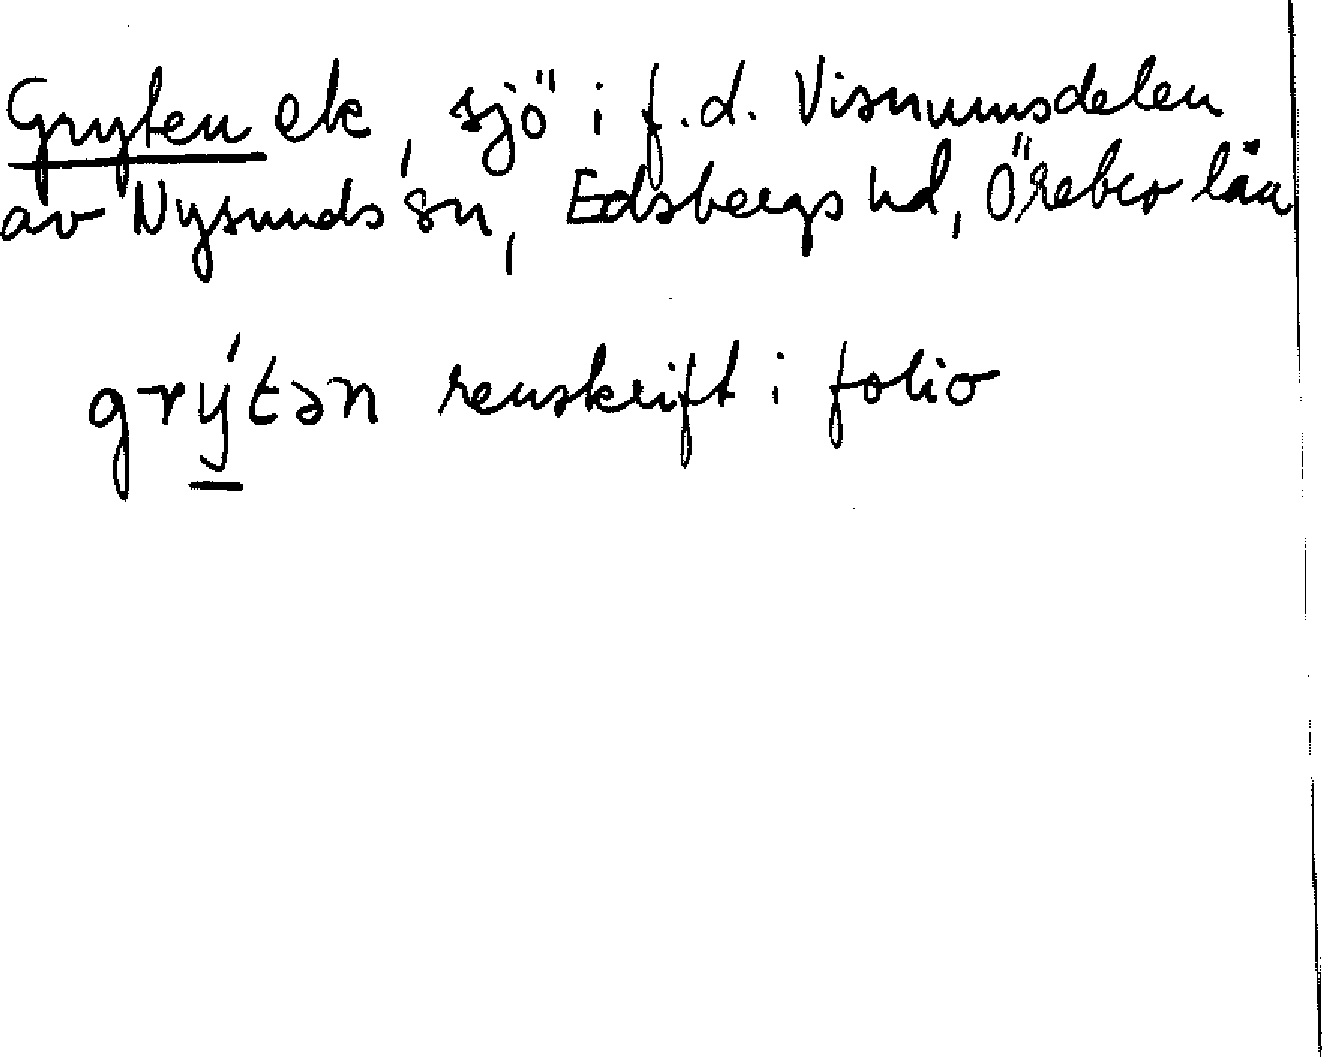 Gryten ek, sjö i f.d. Visnumsdelen
av Nysunds sn, Edsbergs hd, Örebro län
grýtən renskrift i folio